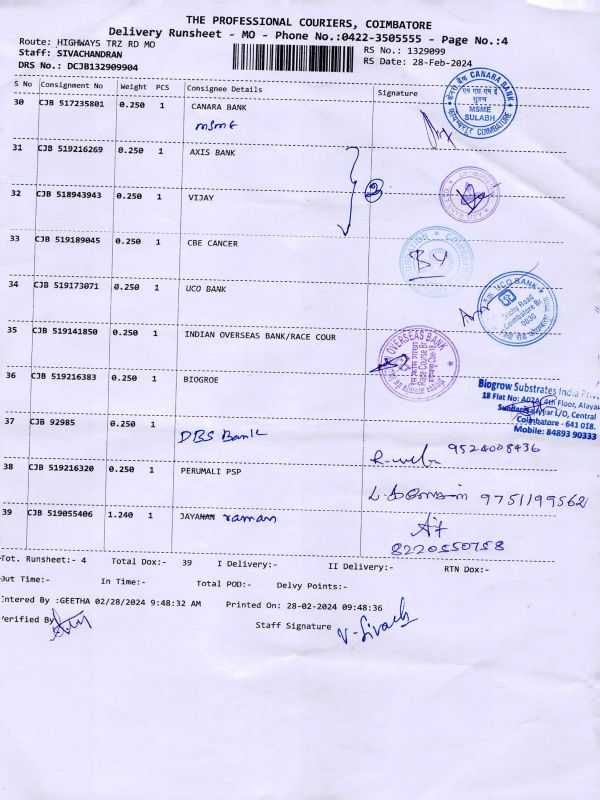 THE PROFESSIONAL COURIERS, COIMBATORE
Delivery Runsheet - MO - Phone No.:0422-3505555 - Page No.:4
Route: HIGHWAYS TRZ RD MO
Staff: SIVACHANDRAN
RS No.: 1329099
DRS No.: DCJB132909904
RS Date: 28-Feb-2024
S No Consignment No Weight PCS Consignee Details Signature
30 CJB 517235801 0.250 1 CANARA BANK
msme
CANARA BANK
MSME
SULABH
COIMBATORE
31 CJB 519216269 0.250 1 AXIS BANK
2
32 CJB 518943943 0.250 1 VIJAY
33 CJB 519189045 0.250 1 CBE CANCER
BY
34 CJB 519173071 0.250 1 UCO BANK
UCO BANK
Trichy Road
Coimbatore Br.
0030
35 CJB 519141850 0.250 1 INDIAN OVERSEAS BANK/RACE COUR
OVERSEAS BANK
Race Course Br
36 CJB 519216383 0.250 1 BIOGROE
Biogrow Substrates India Priv
18 Flat No: 4th Floor, Alaya
L/O, Central
Coimbatore - 641 018.
Mobile: 84893 90333
37 CJB 92985 0.250 1
DBS Bank
9524008436
38 CJB 519216320 0.250 1 PERUMALI PSP
9751199562
39 CJB 519055406 1.240 1 JAYANAN raman
8220550758
Tot. Runsheet:- 4 Total Dox:- 39 I Delivery:- II Delivery:- RTN Dox:-
Out Time:- In Time:- Total POD:- Delvy Points:-
Entered By :GEETHA 02/28/2024 9:48:32 AM Printed On: 28-02-2024 09:48:36
Verified By
Staff Signature V-Sivach